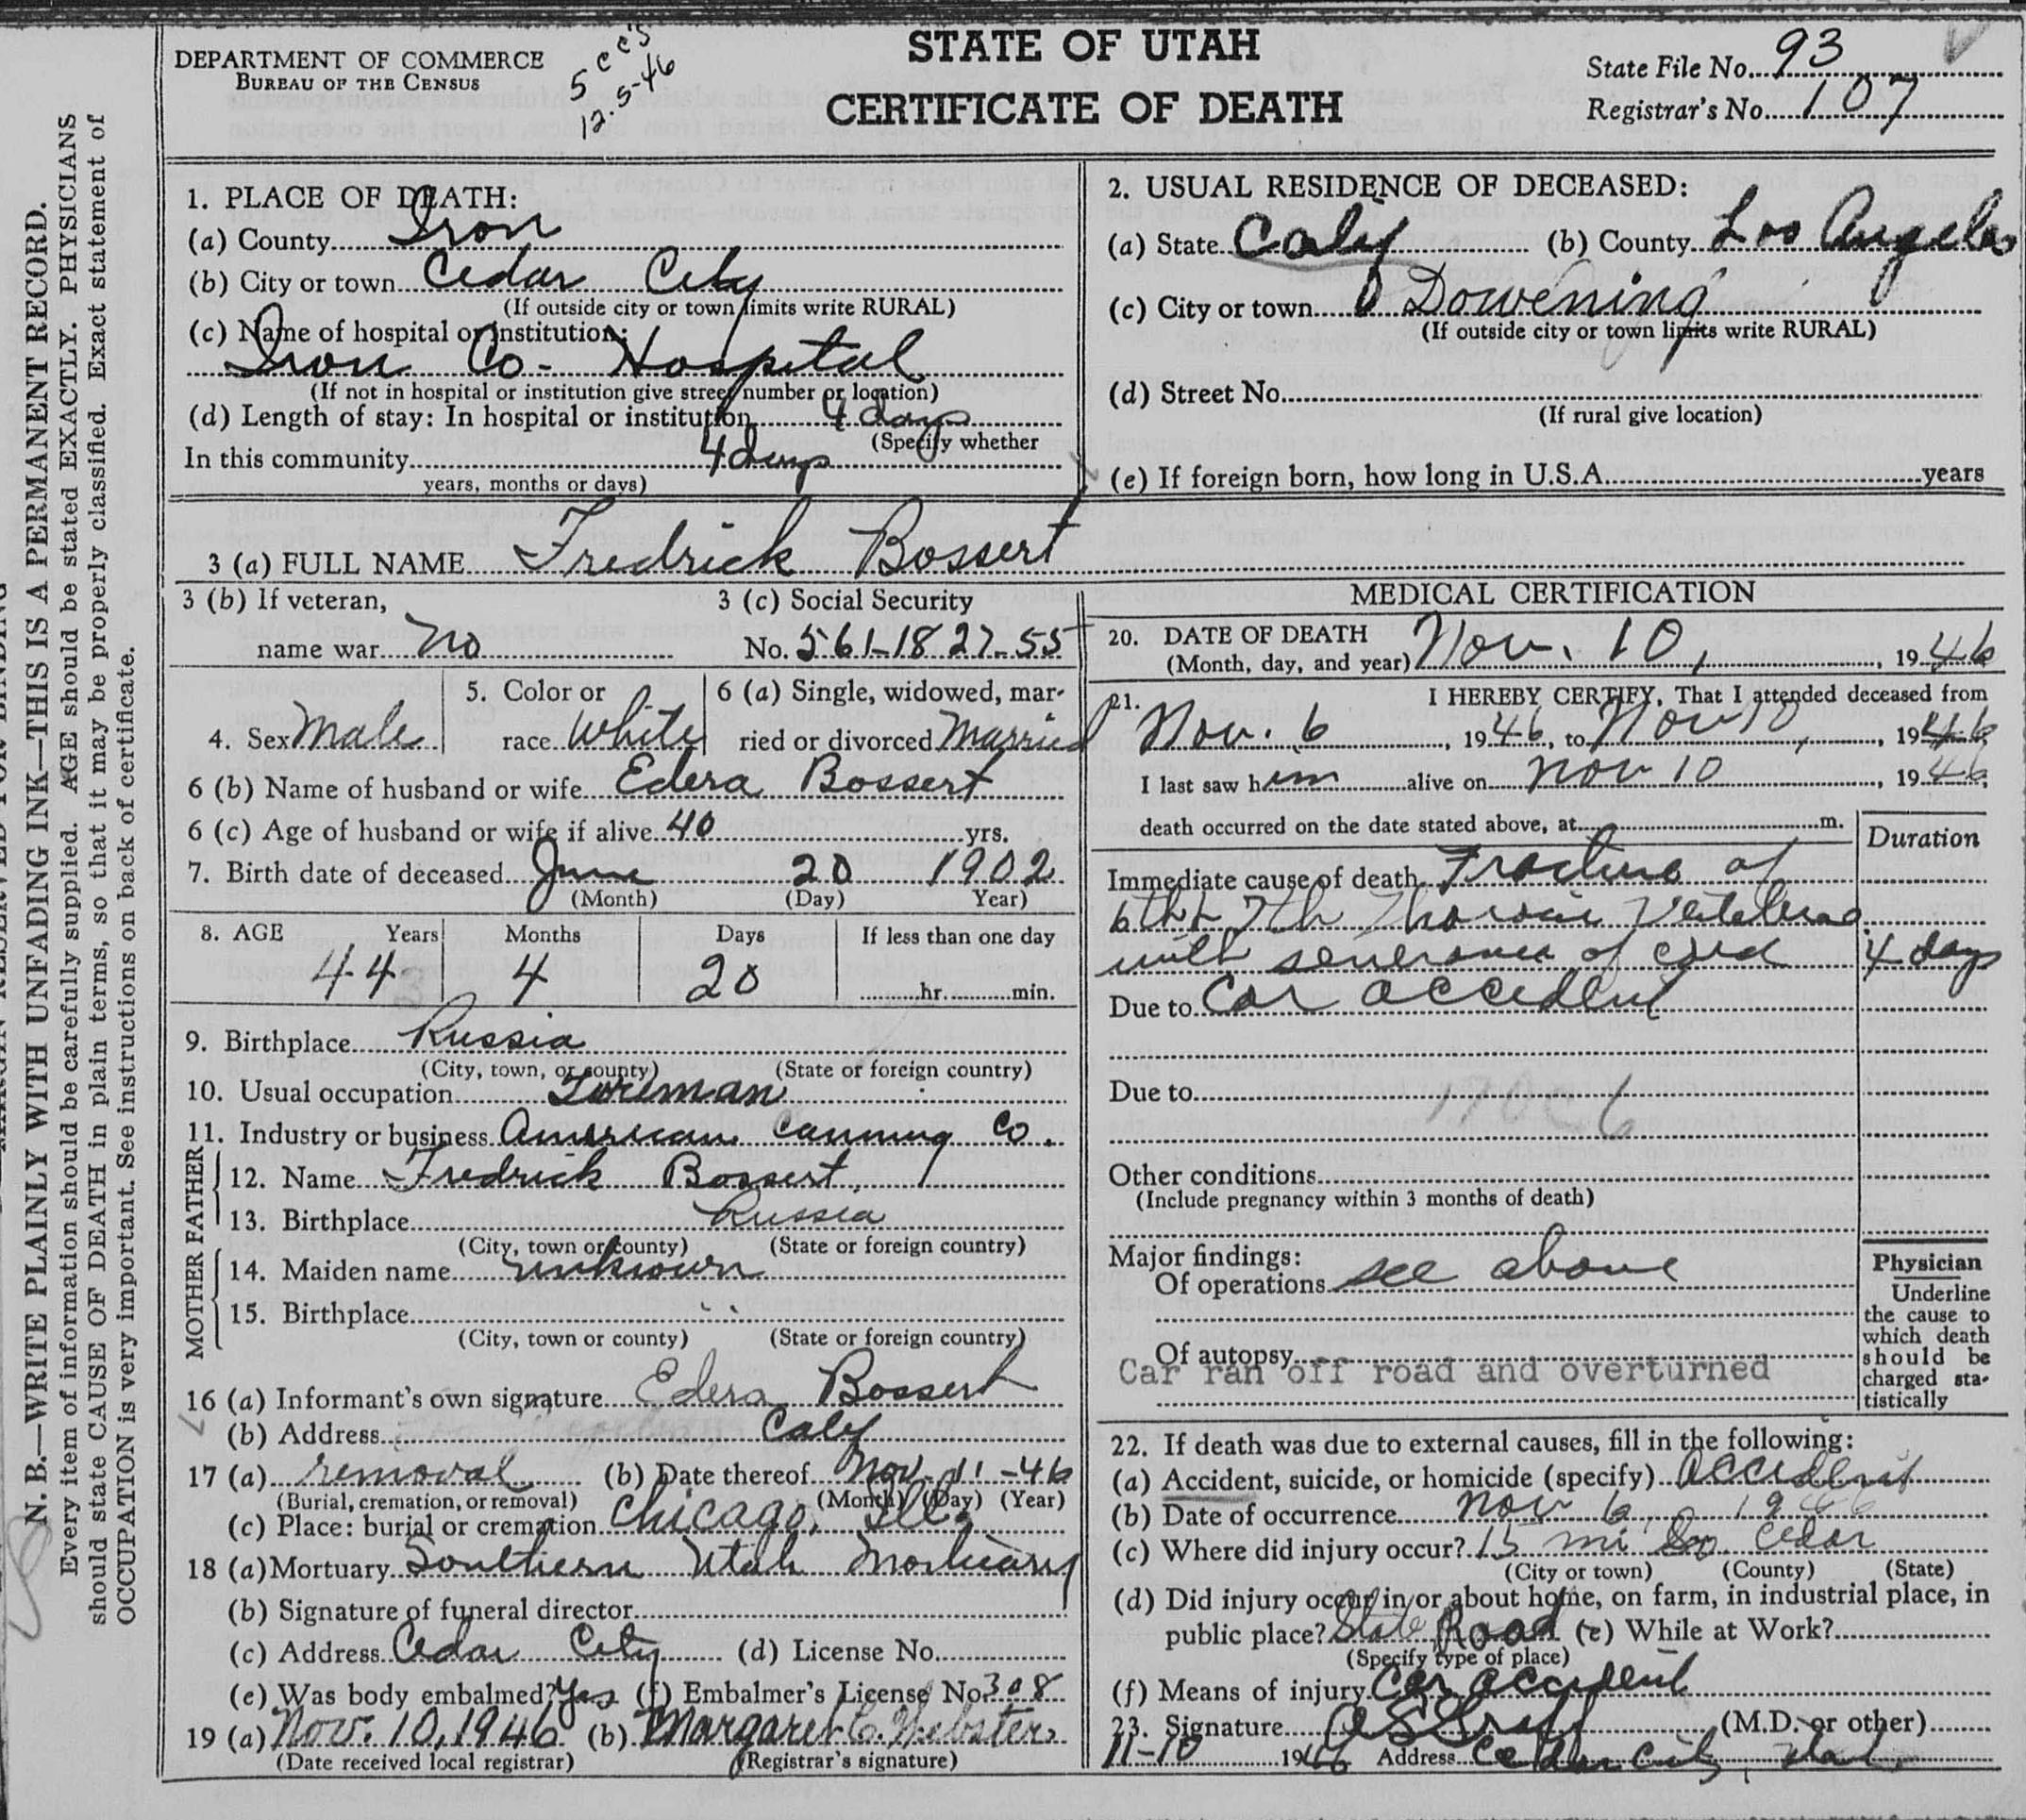 DEPARTMENT OF COMMERCE
BUREAU OF THE CENSUS
STATE OF UTAH
CERTIFICATE OF DEATH
State File No. 93
Registrar's No. 107
N. B.—WRITE PLAINLY WITH UNFADING INK—THIS IS A PERMANENT RECORD.
Every item of information should be carefully supplied. AGE should be stated EXACTLY. PHYSICIANS
should state CAUSE OF DEATH in plain terms, so that it may be properly classified. Exact statement of
OCCUPATION is very important. See instructions on back of certificate.
1. PLACE OF DEATH:
(a) County Iron
(b) City or town Cedar City
(If outside city or town limits write RURAL)
(c) Name of hospital or institution:
Iron Co- Hospital
(If not in hospital or institution give street number or location)
(d) Length of stay: In hospital or institution 4 days
(Specify whether
In this community 4 days
years, months or days)
2. USUAL RESIDENCE OF DECEASED:
(a) State Calif (b) County Los Angeles
(c) City or town Dowening
(If outside city or town limits write RURAL)
(d) Street No.
(If rural give location)
(e) If foreign born, how long in U.S.A. years
3 (a) FULL NAME Fredrick Bossert
3 (b) If veteran,
name war No
3 (c) Social Security
No. 561-18 27-55
4. Sex Male
5. Color or
race White
6 (a) Single, widowed, mar-
ried or divorced Married
6 (b) Name of husband or wife Edera Bossert
6 (c) Age of husband or wife if alive 40 yrs.
7. Birth date of deceased June 20 1902
(Month) (Day) Year)
8. AGE Years Months Days If less than one day
44 4 20 hr. min.
9. Birthplace Russia
(City, town, or county) (State or foreign country)
10. Usual occupation Foreman
11. Industry or business American Canning Co.
FATHER
12. Name Fredrick Bossert
13. Birthplace Russia
(City, town or county) (State or foreign country)
MOTHER
14. Maiden name unknown
15. Birthplace " "
(City, town or county) (State or foreign country)
16 (a) Informant's own signature Edera Bossert
(b) Address Calif
17 (a) removal (b) Date thereof Nov- 11 -46
(Burial, cremation, or removal) (Month) (Day) (Year)
(c) Place: burial or cremation Chicago, Ill.
18 (a) Mortuary Southern Utah Mortuary
(b) Signature of funeral director
(c) Address Cedar City (d) License No.
(e) Was body embalmed? Yes (f) Embalmer's License No. 308
19 (a) Nov. 10, 1946 (b) Margaret C. Webster
(Date received local registrar) (Registrar's signature)
MEDICAL CERTIFICATION
20. DATE OF DEATH
(Month, day, and year) Nov. 10, 1946
21. I HEREBY CERTIFY, That I attended deceased from
Nov. 6, 1946, to Nov 10, 1946
I last saw him alive on Nov 10, 1946,
death occurred on the date stated above, at m.
Duration
Immediate cause of death Fracture of
6th & 7th Thoracic Vertebrae
with severance of cord 4 days
Due to Car accident
Due to
Other conditions
(Include pregnancy within 3 months of death)
Major findings:
Of operations see above
Of autopsy
Car ran off road and overturned
Physician
Underline
the cause to
which death
should be
charged sta-
tistically
22. If death was due to external causes, fill in the following:
(a) Accident, suicide, or homicide (specify) Accident
(b) Date of occurrence Nov 6, 1946
(c) Where did injury occur? 15 mi So Cedar
(City or town) (County) (State)
(d) Did injury occur in or about home, on farm, in industrial place, in
public place? State Road (e) While at Work?
(Specify type of place)
(f) Means of injury Car accident
23. Signature (M.D. or other)
11-10 1946 Address Cedar City, Utah